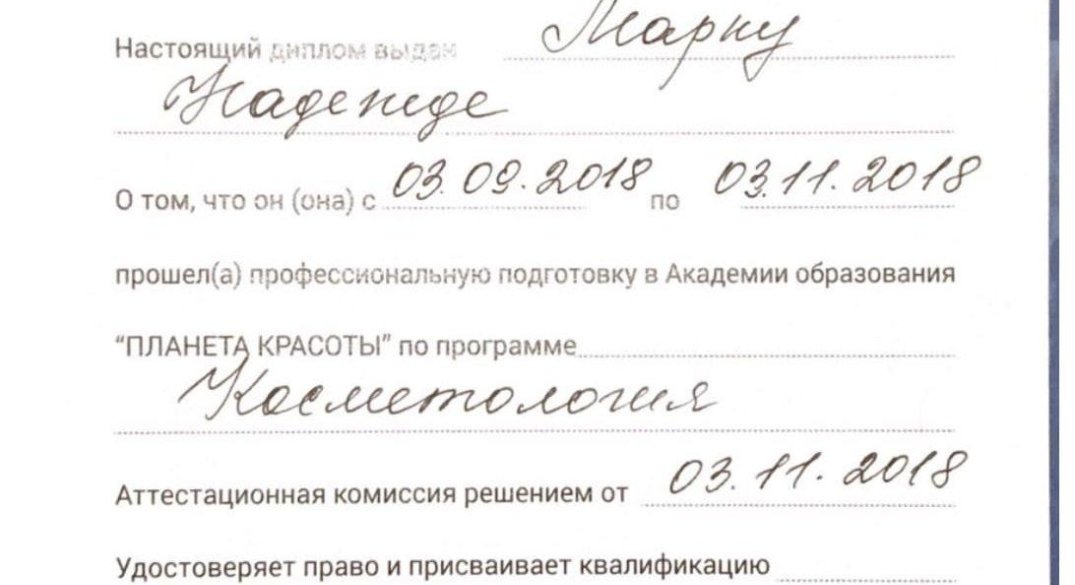 Настоящий диплом выдан Марку
Надежде
О том, что он (она) с 03.09.2018 по 03.11.2018
прошел(а) профессиональную подготовку в Академии образования
“ПЛАНЕТА КРАСОТЫ” по программе
Косметология
Аттестационная комиссия решением от 03.11.2018
Удостоверяет право и присваивает квалификацию